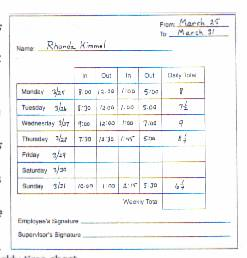 From March 25
To March 31
Name Rhonda Kimmel
In Out In Out Daily Total
Monday 3/25 8:00 12:00 1:00 5:00 8
Tuesday 3/26 8:30 12:00 1:00 5:00 7½
Wednesday 3/27 9:00 12:00 1:00 7:00 9
Thursday 3/28 7:30 12:30 1:45 5:00
Friday 3/29
Saturday 3/30
Sunday 3/31 10:00 1:00 2:15 5:30
Weekly Total
Employee's Signature
Supervisor's Signature